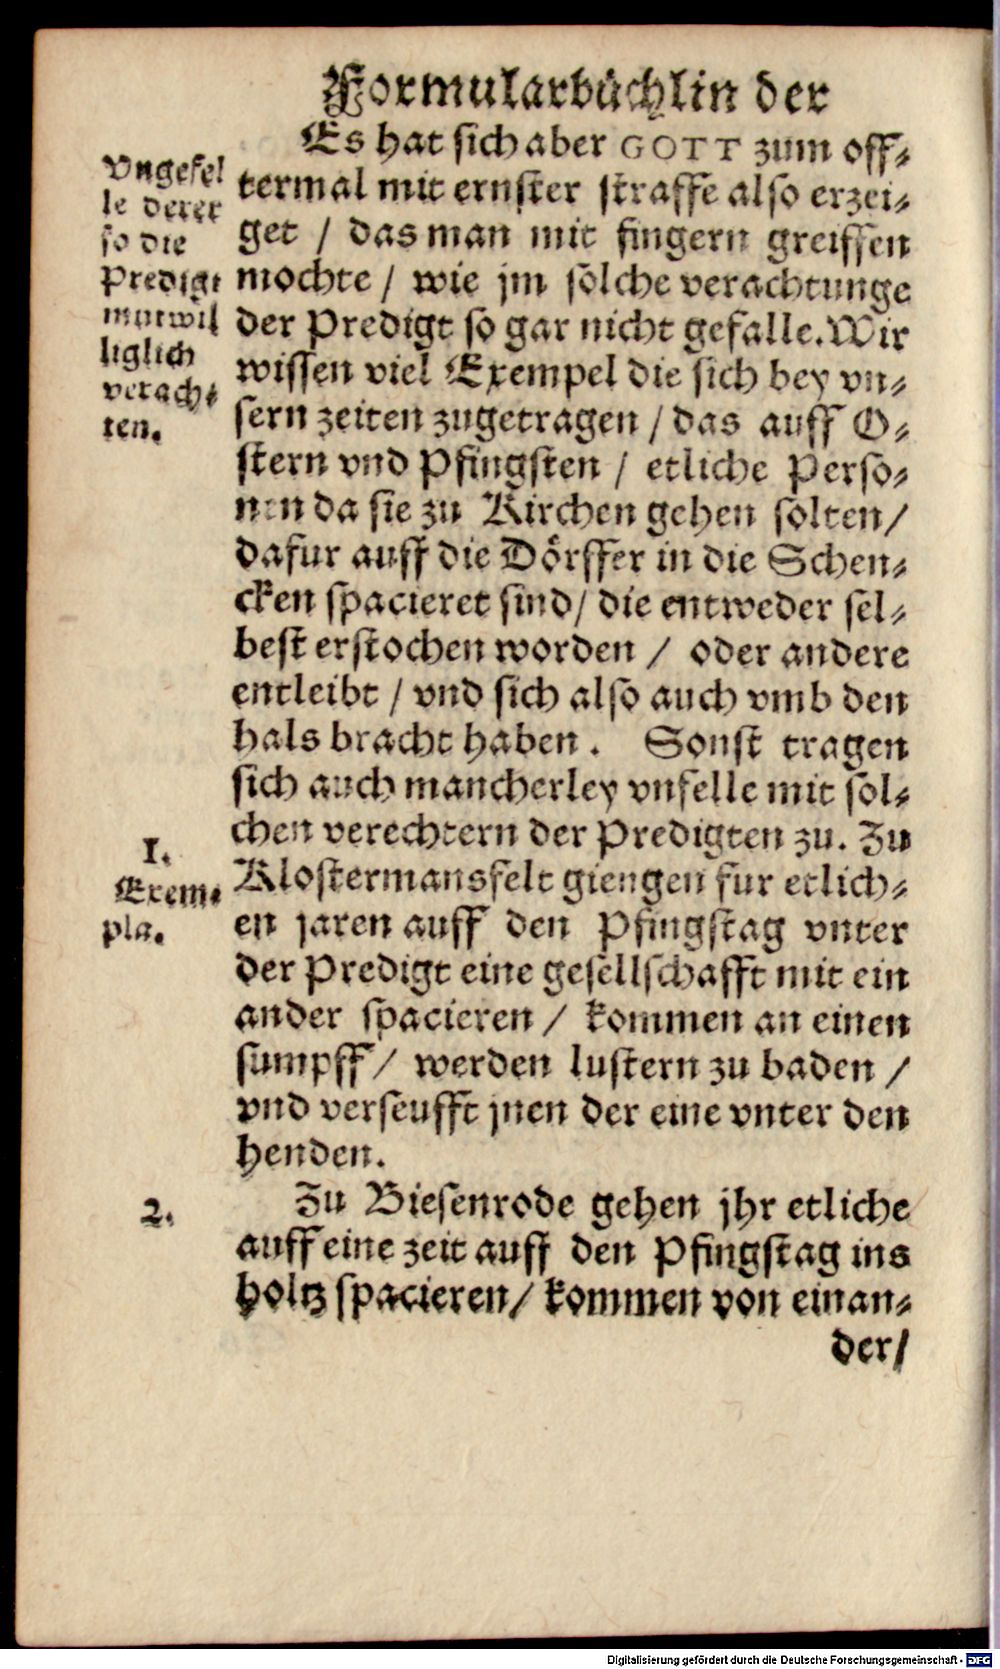 Formularbüchlin der
Es hat sich aber GOTT zum off-
termal mit ernster straffe also erzei-
get / das man mit fingern greiffen
mochte / wie jm solche verachtunge
der Predigt so gar nicht gefalle. Wir
wissen viel Exempel die sich bey vn-
sern zeiten zugetragen / das auff O-
stern vnd Pfingsten / etliche Perso-
nen da sie zu Kirchen gehen solten /
dafur auff die Dörffer in die Schen-
cken spacieret sind / die entweder sel-
best erstochen worden / oder andere
entleibt / vnd sich also auch vmb den
hals bracht haben. Sonst tragen
sich auch mancherley vnfelle mit sol-
chen verechtern der Predigten zu. Zu
Klostermansfelt giengen fur etlich-
en jaren auff den Pfingstag vnter
der Predigt eine gesellschafft mit ein
ander spacieren / kommen an einen
sumpff / werden lustern zu baden /
vnd verseufft jnen der eine vnter den
henden.
Zu Biesenrode gehen jhr etliche
auff eine zeit auff den Pfingstag ins
holtz spacieren / kommen von einan-
der /
Vngefel
le derer
so die
Predigt
mutwil
liglich
verach-
ten.
1.
Exem-
pla.
2.
Digitalisierung gefördert durch die Deutsche Forschungsgemeinschaft - DFG